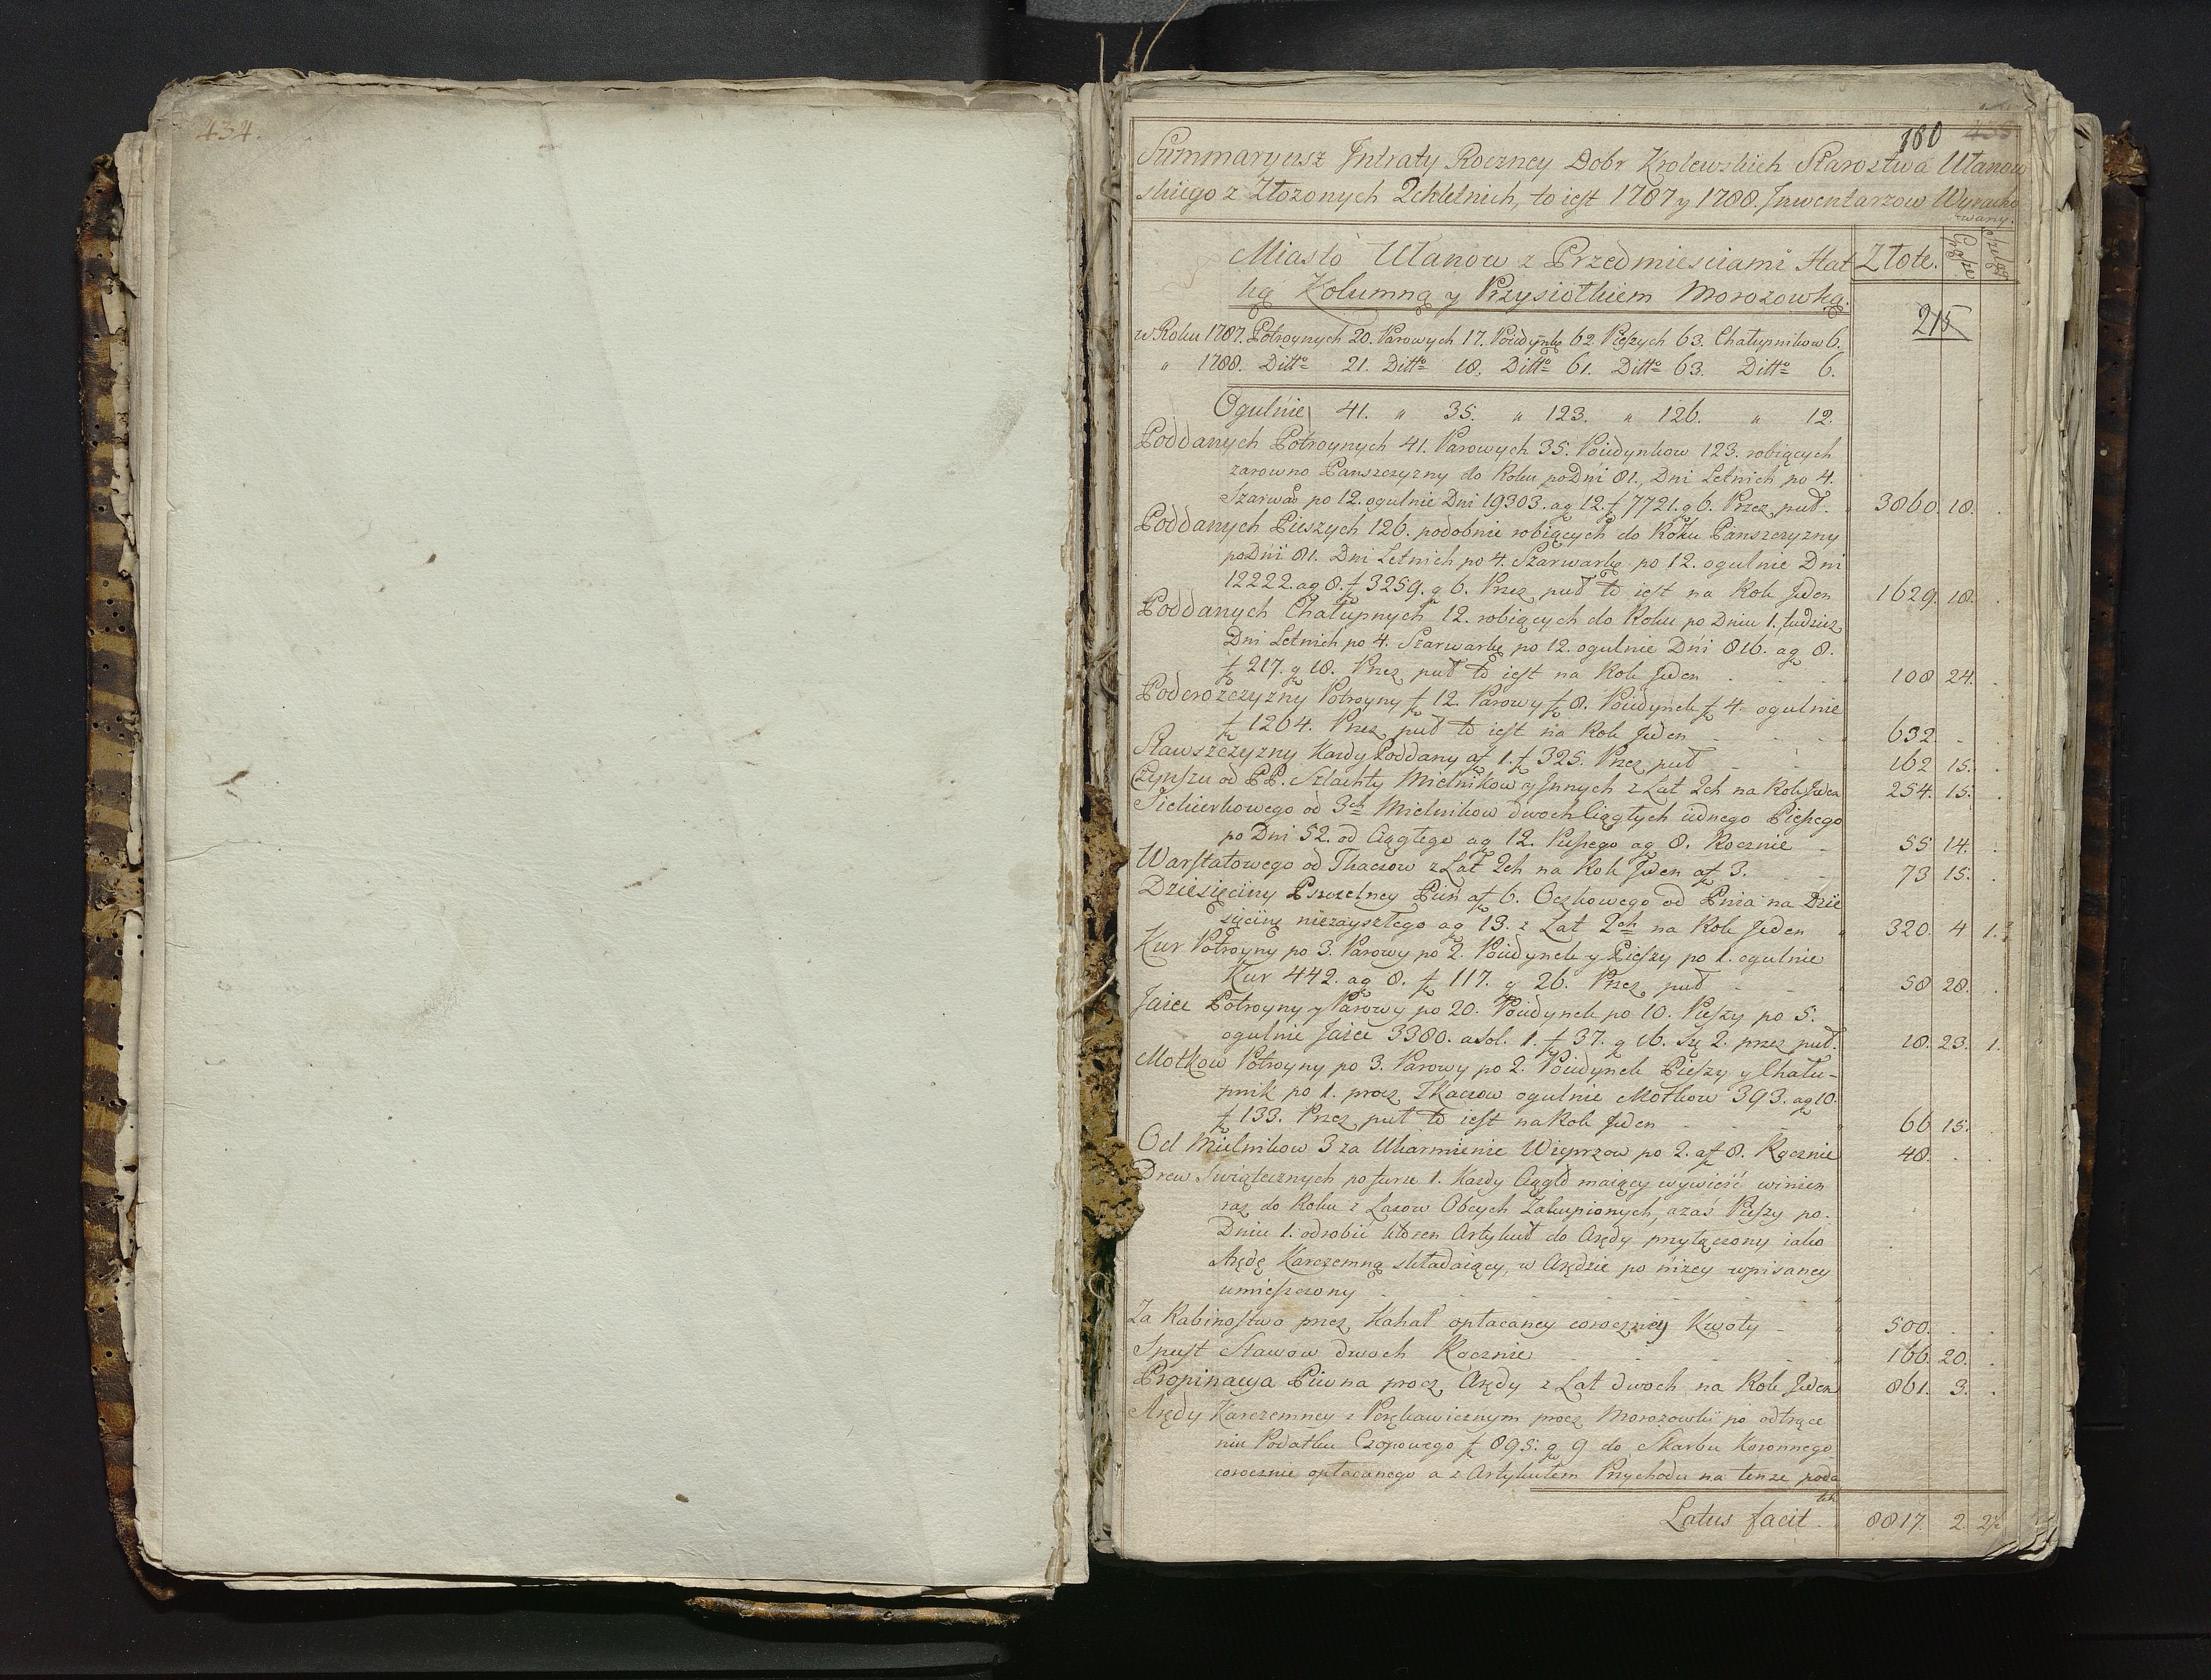 434.
180 435
Summaryusz Jntraty Roczney Dobr Krolewskich Starostwa Ułanow
skiego z Złożonych 2chletnich, to iest 1787 y 1788. Jnwentarzow Wyracho
wany.
Miasto Ułanow z Przedmiesciami Hat Złote. Grosze Szelągi
ką Kolumną y Przysiołkiem Morozowką.
215
w Roku 1787. Potroynych 20. Parowych 17. Poiedynk 62. Pieszych 63. Chałupnikow 6.
" 1788. Ditto 21. Ditto 18. Ditto 61. Ditto 63. Ditto 6.
Ogulnie 41. " 35. " 123. " 126. " 12.
Poddanych Potroynych 41. Parowych 35. Poiedynkow 123. robiących
zarowno Panszczyzny do Roku po Dni 81., Dni Letnich po 4.
Szarwar po 12. ogulnie Dni 19303. a g 12. f 7721. g 6. Przez puł. 3860. 18.
Poddanych Pieszych 126. podobnie robiących do Roku Panszczyzny
po Dni 81. Dni Letnich po 4. Szarwark po 12. ogulnie Dni
12222. a g 8. f 3259. g 6. Przez puł to iest na Rok Jeden 1629. 18.
Poddanych Chałupnych 12. robiących do Roku po Dniu 1. tudziez
Dni Letnich po 4. Szarwark po 12. ogulnie Dni 816. a g 8.
f 217. g 18. Przez puł to iest na Rok Jeden 108 24.
Podorozczyzny Potroyny f 12. Parowy f 8. Poiedynek f 4. ogulnie
f 1264. Przez puł to iest na Rok Jeden 632.
Stawszczyzny Kazdy Poddany a f 1. f 325. Przez puł 162 15.
Czynszu od PP. Szlachty Mielnikow y Jnnych z Lat 2ch na Rok Jeden 254. 15.
Siekierkowego od 3ch Mielnikow dwoch Ciągłych iednego Pieszego
po Dni 52. od Ciągłego a g 12. Pieszego a g 8. Rocznie 55 14.
Warsztatowego od Tkaczow z Lat 2ch na Rok Jeden a f 3. 73 15.
Dziesięciny Pszczelney Pień a f 6. Oczkowego od Pnia na Dzie
sięcinę niezayszłego a g 13. z Lat 2ch na Rok Jeden 320. 4 1.
Kur Potroyny po 3. Parowy po 2. Poiedynek y Pieszy po 1. ogulnie
Kur 442. a g 8. f 117. g 26. Przez puł 58 28.
Jaiec Potroyny y Parowy po 20. Poiedynek po 10. Pieszy po 5.
ogulnie Jaiec 3380. a sol. 1. f 37. g 16. szę 2. przez puł. 18. 23. 1.
Motkow Potroyny po 3. Parowy po 2. Poiedynek Pieszy y Chału-
pnik po 1. procz Tkaczow ogulnie Motkow 393. a g 10.
f 133. Przez puł to iest na Rok Jeden 66 15.
Od Mielnikow 3 za Ukarmienie Wieprzow po 2. a f 8. Rocznie 48.
Drew Swiątecznych po furze 1. Kazdy Ciągło maiący wywieść winien
raz do Roku z Lasow Obcych Zakupionych, azaś Pieszy po
Dniu 1. odrobić ktoren Artykuł do Arędy przyłączony iako
Arędę Karczemną składaiący, w Arędzie po niżey wpisaney
umieszczony
Za Rabinostwo przez Kahał opłacaney coroczniey Kwoty 500.
Spust Stawow dwoch Rocznie 166. 20.
Propinacya Piwna procz Arędy z Lat dwoch na Rok Jeden 861. 3.
Arędy Karczemney z Porękawicznym procz Morozowki po odtrące
niu Podatku Czopowego f 895. g 9 do Skarbu Koronnego
corocznie opłacanego a z Artykułem Przychodu na tenze poda
tek
Latus facit 8817. 2. 2½